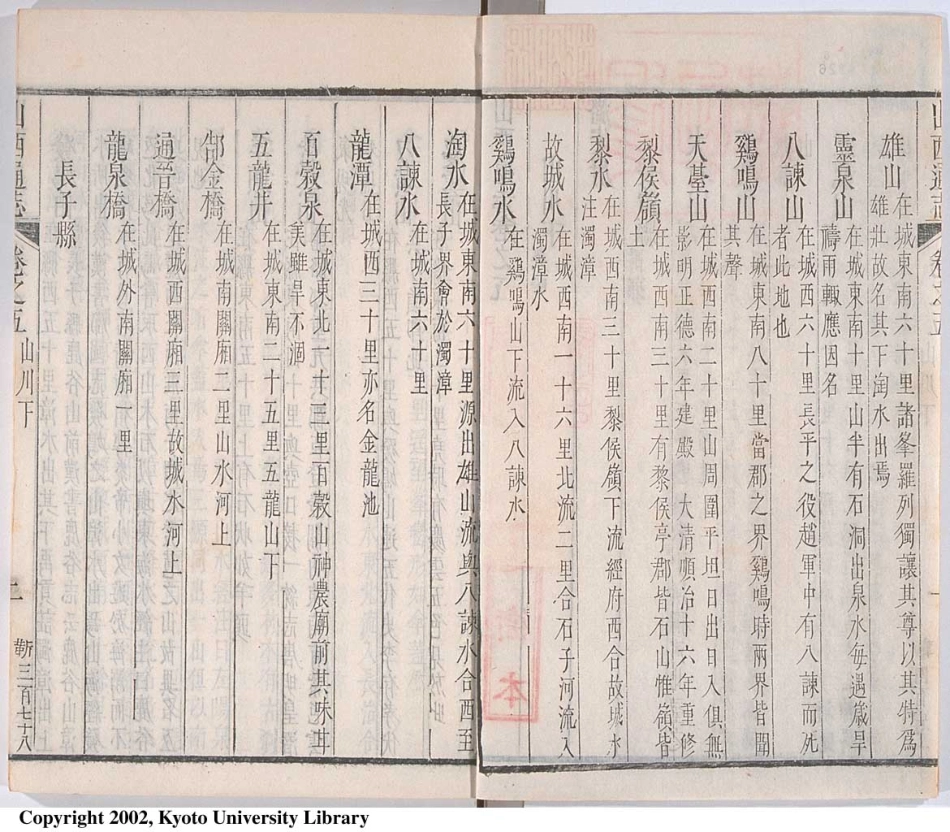 山西通志
卷之五
雄山
在城東南六十里諸峯羅列獨讓其尊以其特爲
雄壯故名其下淘水出焉
靈泉山
在城東南十里山半有石洞出泉水每遇歲旱
禱雨輒應因名
八諫山
在城西南六十里長平之役趙軍中有八諫而死
者此地也
雞鳴山
在城東南八十里當郡之界雞鳴時兩界皆聞
其聲
天臺山
在城西南二十里山周圍平坦日出日入俱無
影明正德六年建殿 大清順治十六年重修
黎侯嶺
在城西南三十里有黎侯亭郡皆石山惟嶺皆
土
黎水
在城西南三十里黎侯嶺下流經府西合故城水
注濁漳
故城水
在城西南一十六里北流二里合石子河流入
濁漳水
雞鳴水
在雞鳴山下流入八諫水
淘水
在城東南六十里源出雄山流與八諫水合西至
長子界會於濁漳
八諫水
在城南六十里
龍潭
在城西三十里亦名金龍池
百穀泉
在城東北一十三里百穀山神農廟前其味甘
美雖旱不涸
五龍井
在城東南二十五里五龍山下
郜金橋
在城南關廂二里山水河上
通晉橋
在城西關廂三里故城水河上
龍泉橋
在城外南關廂一里
長子縣
山西通志
卷之五 山川下
二
三百七十八
本
Copyright 2002, Kyoto University Library